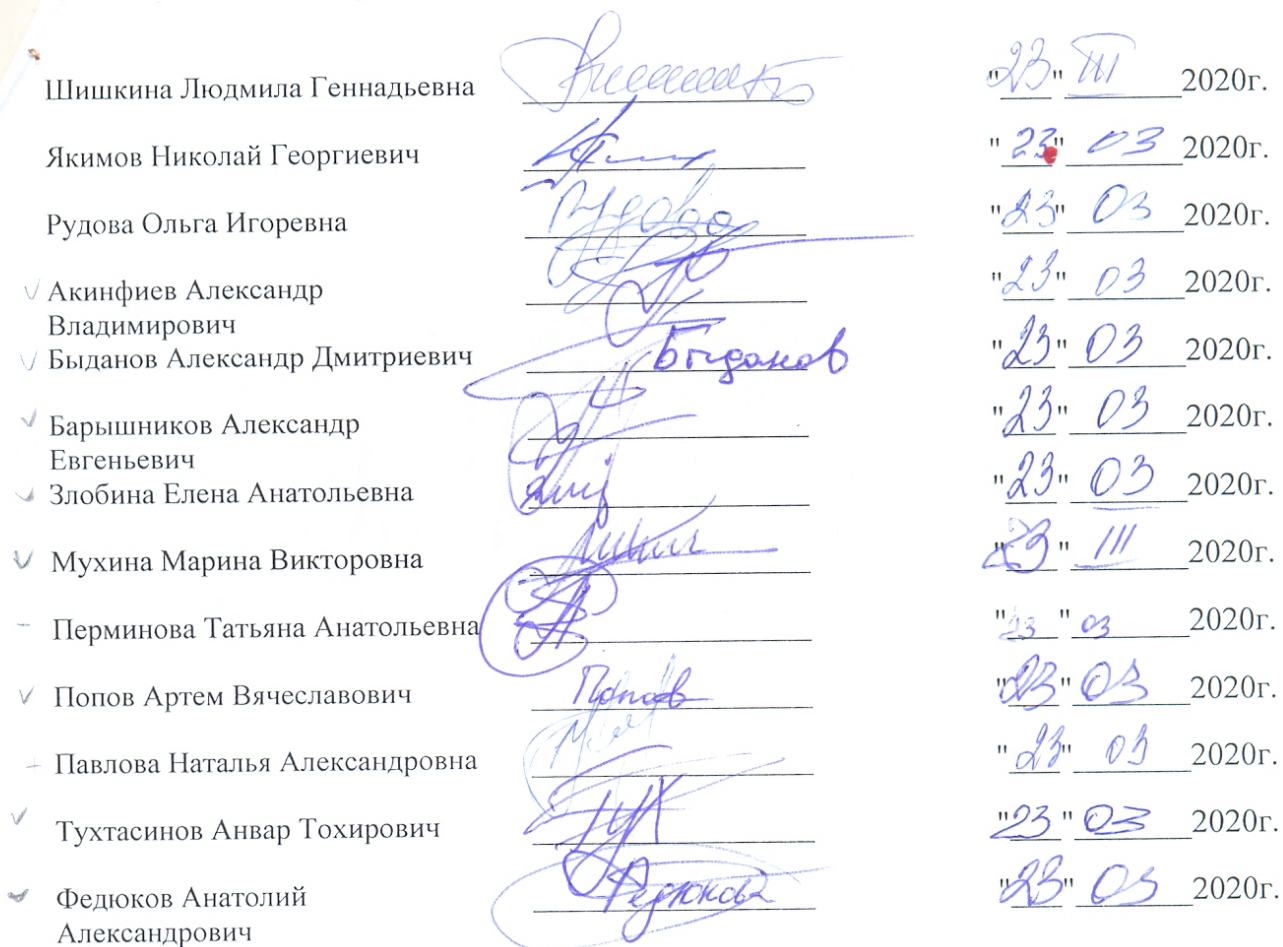 Шишкина Людмила Геннадьевна "23" III 2020г.
Якимов Николай Георгиевич "23" 03 2020г.
Рудова Ольга Игоревна Рудова "23" 03 2020г.
Акинфиев Александр "23" 03 2020г.
Владимирович
Быданов Александр Дмитриевич Быданов "23" 03 2020г.
Барышников Александр "23" 03 2020г.
Евгеньевич
Злобина Елена Анатольевна "23" 03 2020г.
Мухина Марина Викторовна "23" III 2020г.
Перминова Татьяна Анатольевна "23" 03 2020г.
Попов Артем Вячеславович Попов "23" 03 2020г.
Павлова Наталья Александровна "23" 03 2020г.
Тухтасинов Анвар Тохирович "23" 03 2020г.
Федюков Анатолий "23" 03 2020г.
Александрович